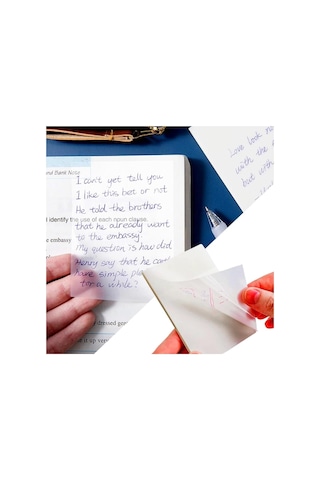 and Dank Note
I can't yet tell you
I like this bet or not
He told the brothers
identify the use of each noun clause
that he already want
embassy
to the embassy.
My question is how did
Henry say that he can
have simple
for a while?
Love look
with the
but with